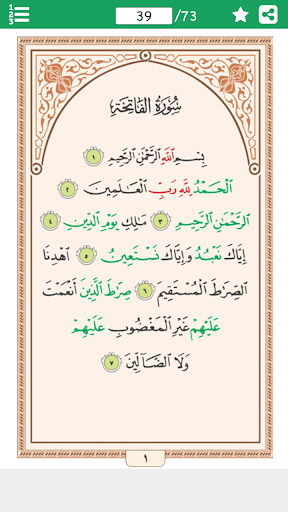 123
39 /73
سُورَةُ الفَاتِحَةِ
بِسْمِ ٱللَّهِ ٱلرَّحْمَٰنِ ٱلرَّحِيمِ ١
ٱلْحَمْدُ لِلَّهِ رَبِّ ٱلْعَٰلَمِينَ ٢
ٱلرَّحْمَٰنِ ٱلرَّحِيمِ ٣ مَٰلِكِ يَوْمِ ٱلدِّينِ ٤
إِيَّاكَ نَعْبُدُ وَإِيَّاكَ نَسْتَعِينُ ٥ ٱهْدِنَا
ٱلصِّرَٰطَ ٱلْمُسْتَقِيمَ ٦ صِرَٰطَ ٱلَّذِينَ أَنْعَمْتَ
عَلَيْهِمْ غَيْرِ ٱلْمَغْضُوبِ عَلَيْهِمْ
وَلَا ٱلضَّآلِّينَ ٧
١